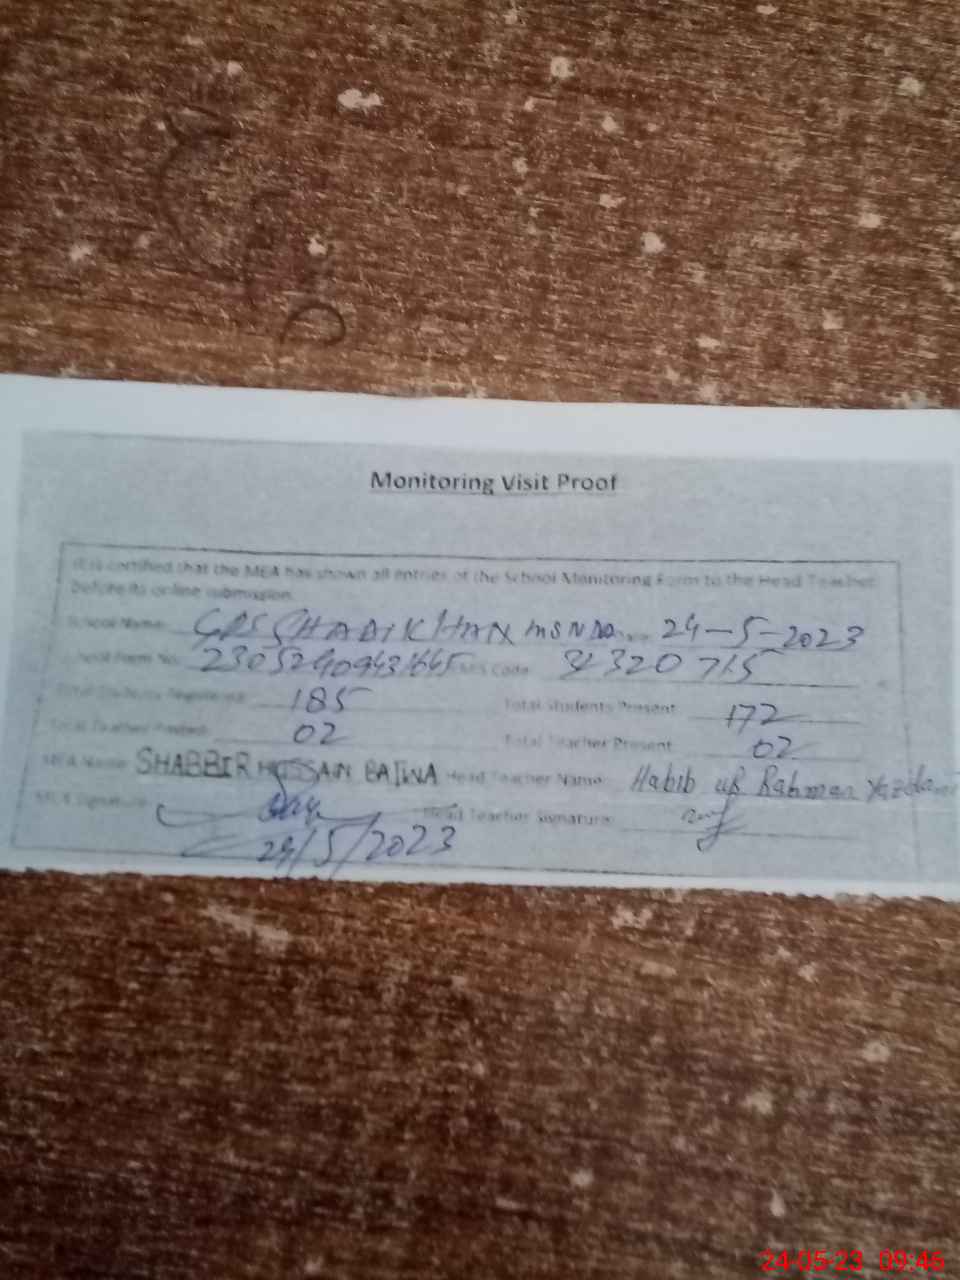 Monitoring Visit Proof
It is certified that the MEA has shown all entries of the School Monitoring Form to the Head Teacher
before its online submission.
School Name: GPS SHADI KHAN MSNDA 24-5-2023
School Form No. Code 32320715
Total Students Registered: 185 Total Students Present: 172
Total Teacher Posted: 02 Total Teacher Present: 02
MEA Name: SHABBIR HUSSAIN BAJWA Head Teacher Name: Habib ur Rahman Yazdani
MEA Signature: Head Teacher Signature:
24/5/2023
24-05-23 09:46